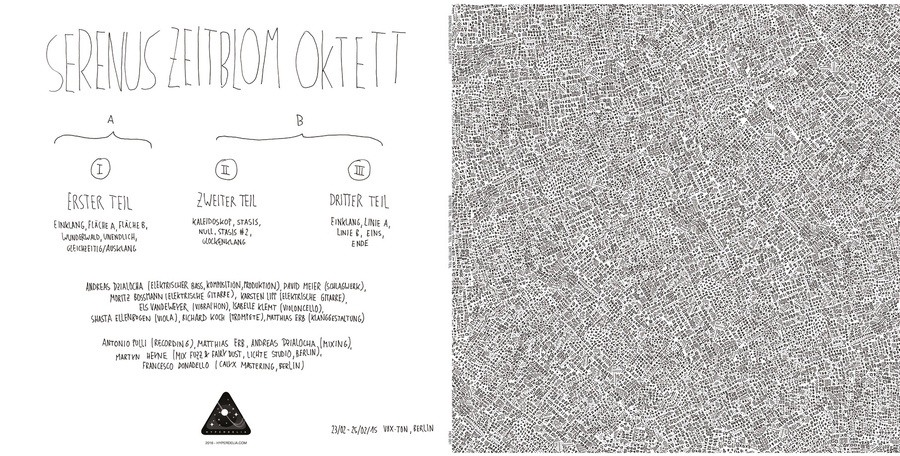 SERENUS ZEITBLOM OKTETT
A
B
I
II
III
ERSTER TEIL
ZWEITER TEIL
DRITTER TEIL
EINKLANG, FLÄCHE A, FLÄCHE B,
WUNDERWALD, UNENDLICH,
GLEICHZEITIG/AUSKLANG
KALEIDOSKOP, STASIS,
NULL, STASIS #2,
GLOCKENKLANG
EINKLANG, LINIE A,
LINIE B, EINS,
ENDE
ANDREAS DZIALOCHA (ELEKTRISCHER BASS, KOMPOSITION, PRODUKTION), DAVID MEIER (SCHLAGWERK),
MORITZ BOSSMANN (ELEKTRISCHE GITARRE), KARSTEN LIPP (ELEKTRISCHE GITARRE),
ELS VANDEWEYER (VIBRAPHON), ISABELLE KLEMT (VIOLONCELLO),
SHASTA ELLENBOGEN (VIOLA), RICHARD KOCH (TROMPETE), MATTHIAS ERB (KLANGGESTALTUNG)
ANTONIO PULLI (RECORDING), MATTHIAS ERB, ANDREAS DZIALOCHA, (MIXING),
MARTYN HEYNE (MIX FUZZ & FAIRY DUST, LICHTE STUDIO, BERLIN),
FRANCESCO DONADELLO (CALYX MASTERING, BERLIN)
HYPERDELIA
2016 - HYPERDELIA.COM
23/02 - 26/02/15 VOX-TON, BERLIN